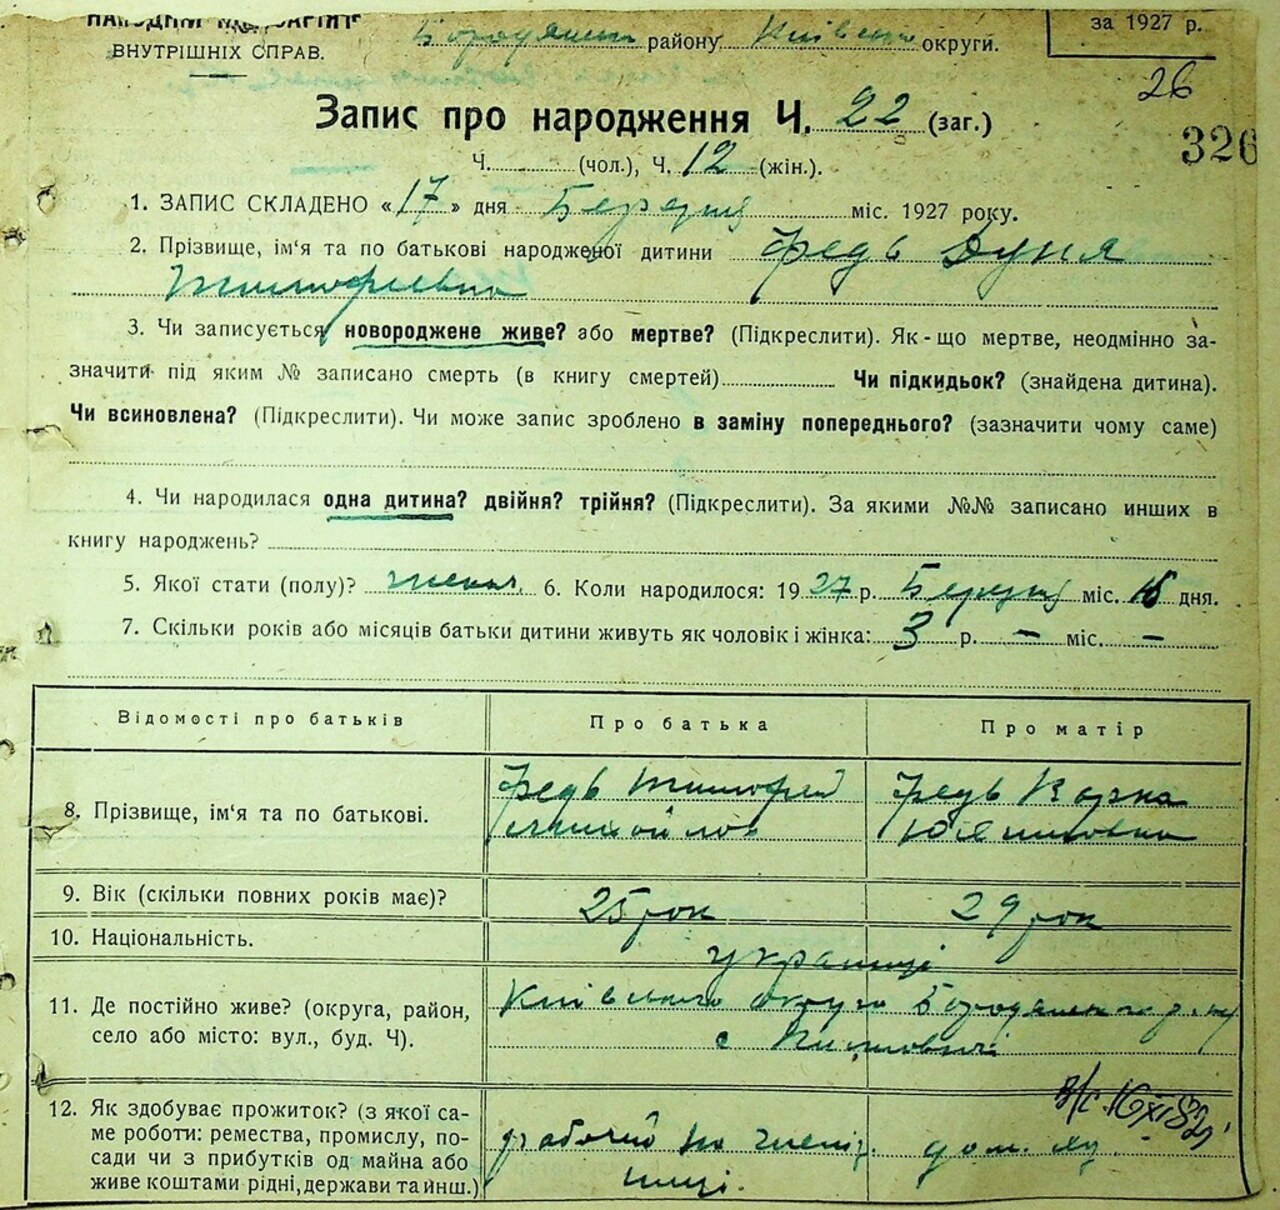 ВНУТРІШНІХ СПРАВ.
району Київської округи.
за 1927 р.
26
Запис про народження Ч. 22 (заг.)
326
Ч. (чол.), Ч. 12 (жін.).
1. ЗАПИС СКЛАДЕНО «17» дня Березня міс. 1927 року.
2. Прізвище, ім'я та по батькові народженої дитини Федь Дуня
Тимофіевна
3. Чи записується новороджене живе? або мертве? (Підкреслити). Як-що мертве, неодмінно за-
значити під яким № записано смерть (в книгу смертей) Чи підкидьок? (знайдена дитина).
Чи всиновлена? (Підкреслити). Чи може запис зроблено в заміну попереднього? (зазначити чому саме)
4. Чи народилася одна дитина? двійня? трійня? (Підкреслити). За якими №№ записано инших в
книгу народжень?
5. Якої стати (полу)? 6. Коли народилося: 1927 р. Березня міс. дня.
7. Скільки років або місяців батьки дитини живуть як чоловік і жінка: 3 р. — міс. —
Відомості про батьків Про батька Про матір
8. Прізвище, ім'я та по батькові. Федь Тимофей Федь
9. Вік (скільки повних років має)? 25 рок 29 рок
10. Національність. украинці
11. Де постійно живе? (округа, район, село або місто: вул., буд. Ч).
с
12. Як здобуває прожиток? (з якої са-
ме роботи: ремества, промислу, по-
сади чи з прибутків од майна або
живе коштами рідні, держави та инш.)
рабочий на дом. хз.